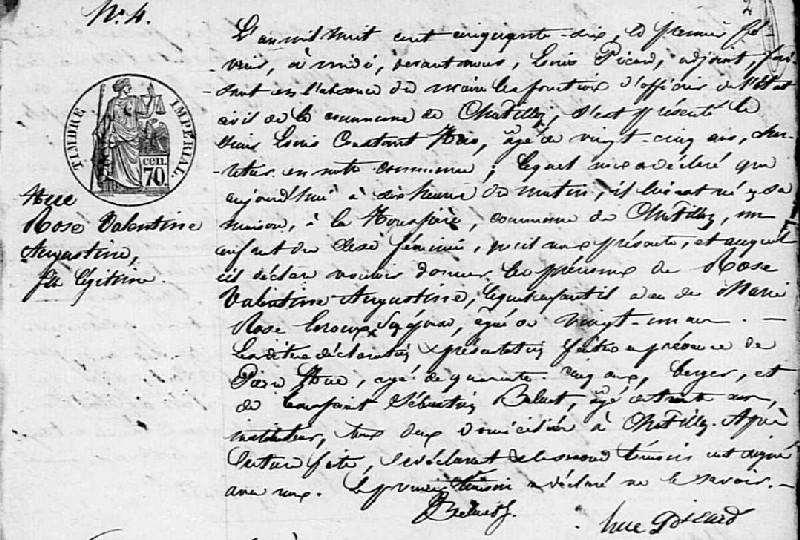 N.° 4.
2
L'an mil huit cent cinquante-dix, le premier fé-
vrier, à midi, devant nous, Louis Picard, adjoint, fai-
sant en l'absence du maire les fonctions d'officier de l'état
civil de la commune de Chatilly, s'est présenté le
sieur Louis Constant Hue, âgé de vingt-cinq ans,
en notre commune, lequel nous a déclaré que
aujourd'hui à dix heures du matin, il lui est né en sa
maison, à la, commune de Chatilly, un
enfant du sexe féminin, qu'il nous présente, et auquel
il déclare vouloir donner les prénoms de Rose
Valentine Augustine, lequel enfant il a eu de Marie
Rose son épouse, âgée de vingt-un ans. —
Les dites déclaration & présentation faites en présence de
Hue, âgé de quarante-cinq ans, berger, et
de Sébastien, âgé de trente ans,
instituteur, tous deux domiciliés à Chatilly. Après
lecture faite, le déclarant et le second témoin ont signé
avec nous. Le premier témoin a déclaré ne le savoir. —
Hue Picard
TIMBRE IMPÉRIAL
70 cen.
Hue
Rose Valentine
Augustine,
fle légitime.